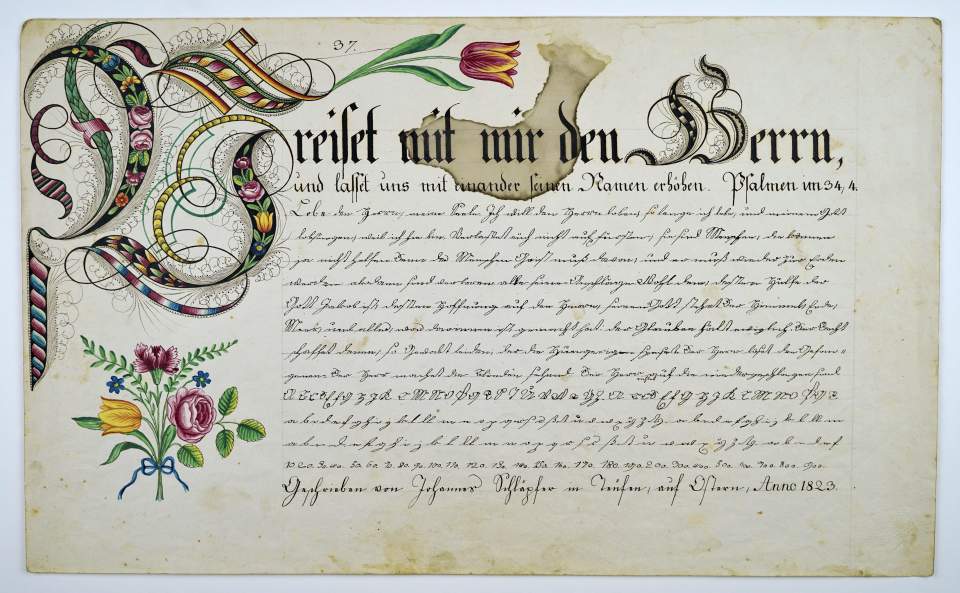 37.
Preiset mit mir den Herrn,
und lasset uns mit einander seinen Namen erhöhen. Psalmen im 34, 4.
Lobe den Herrn, meine Seele. Ich will den Herrn loben, so lange ich lebe, und meinem Gott
lobsingen, weil ich hie bin. Verlasset euch nicht auf Fürsten, sie sind Menschen, die können
ja nicht helfen. Denn des Menschen Geist muß davon, und er muß wieder zur Erden
werden alsdann sind verloren alle seine Anschläge. Wohl dem, dessen Hülfe der
Gott Jakobs ist, dessen Hoffnung auf den Herrn, seinen Gott stehet. Der Himmel, Erde,
Meer, und alles, was darinnen ist, gemacht hat. Der Glauben hält ewiglich. Der Recht
schaffet denen, so Gewalt leiden, der die Hungerigen speiset. Der Herr löset den Gefan-
genen. Der Herr machet die Blinden sehend. Der Herr richtet auf, die niedergeschlagen sind
10. 20. 30. 40. 50. 60. 70. 80. 90. 100. 110. 120. 130. 140. 150. 160. 170. 180. 190. 200. 300. 400. 500. 600. 700. 800. 900.
Geschrieben von Johannes Schläpfer in Teüfen, auf Ostern, Anno 1823.